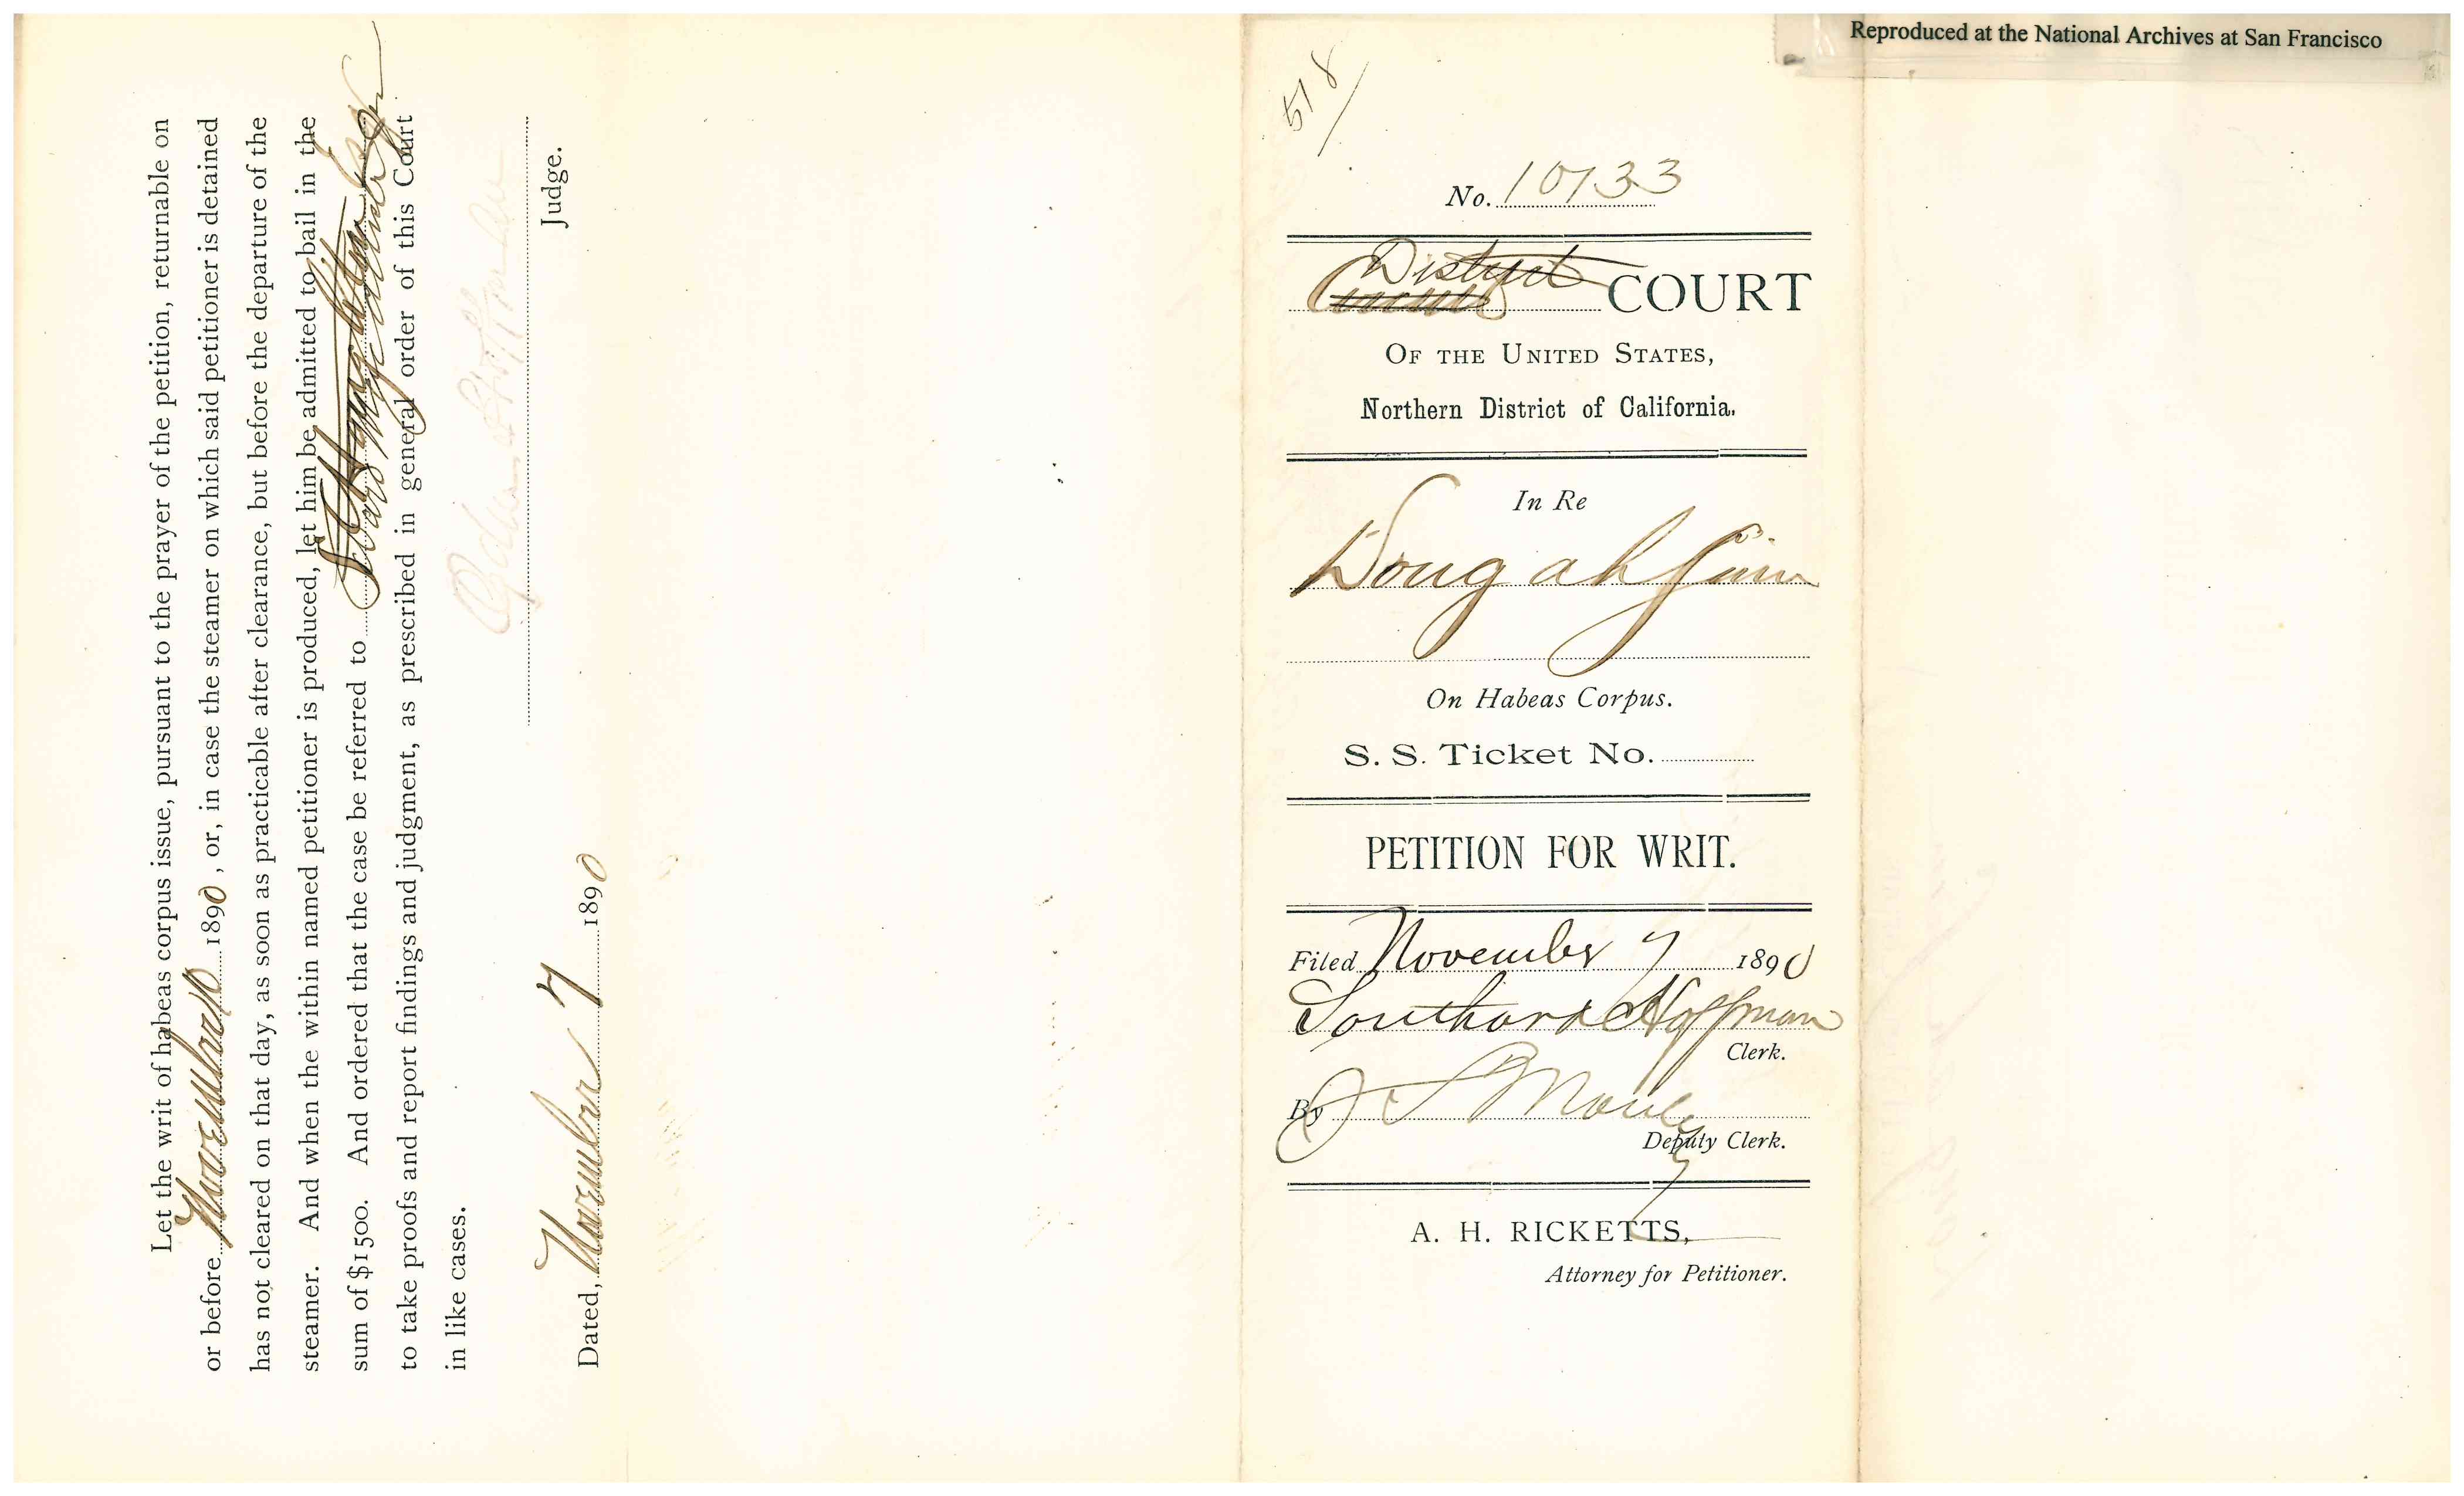 Let the writ of habeas corpus issue, pursuant to the prayer of the petition, returnable on
or before November 1890, or, in case the steamer on which said petitioner is detained
has not cleared on that day, as soon as practicable after clearance, but before the departure of the
steamer. And when the within named petitioner is produced, let him be admitted to bail in the
sum of $1500. And ordered that the case be referred to
to take proofs and report findings and judgment, as prescribed in general order of this Court
in like cases.
Judge.
Dated, November 7 1890
Reproduced at the National Archives at San Francisco
518
No. 10133
District
COURT
OF THE UNITED STATES,
Northern District of California.
In Re
Wong ah
On Habeas Corpus.
S. S. Ticket No.
PETITION FOR WRIT.
Filed November 7 1890
Southard Hoffman
Clerk.
By
Deputy Clerk.
A. H. RICKETTS,
Attorney for Petitioner.